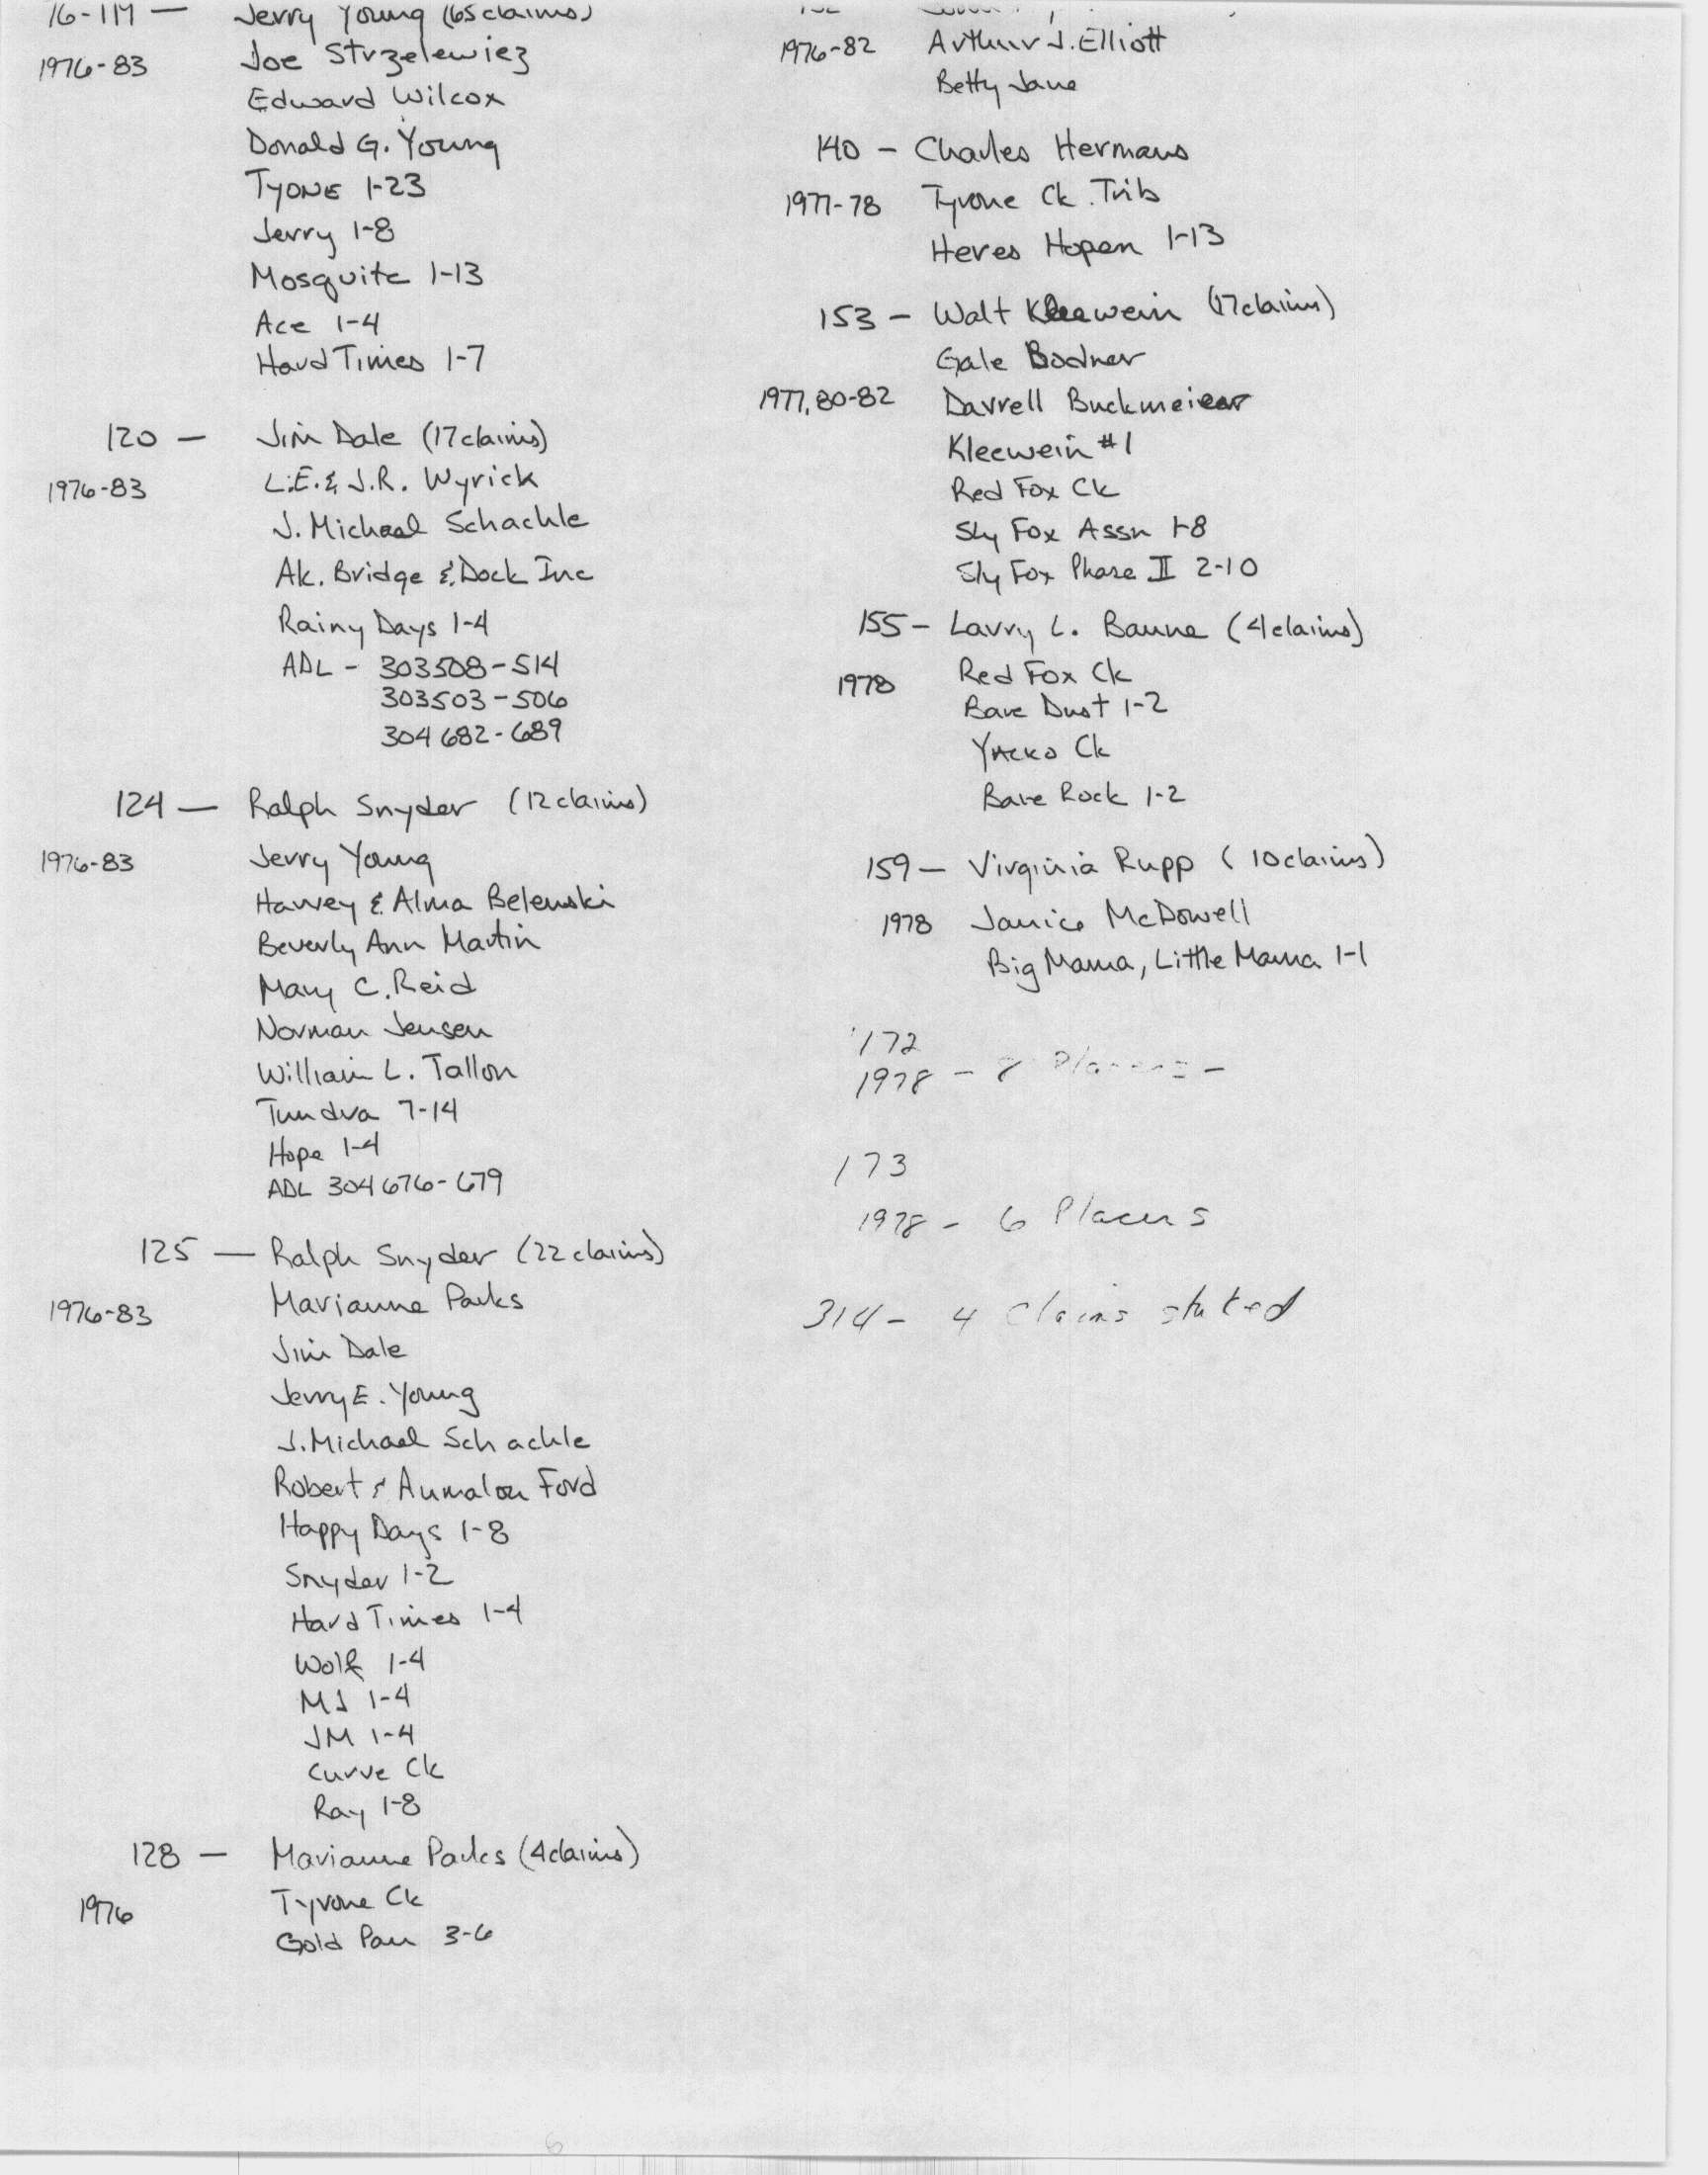 16-114 — Jerry Young (65 claims)
1976-83 Joe Strzelewiez
Edward Wilcox
Donald G. Young
TYONE 1-23
Jerry 1-8
Mosquite 1-13
Ace 1-4
Hard Times 1-7
120 — Jim Dale (17 claims)
1976-83 L.E. & J.R. Wyrick
J. Michael Schachle
Ak. Bridge & Dock Inc
Rainy Days 1-4
ADL - 303508-514
303503-506
304682-689
124 — Ralph Snyder (12 claims)
1976-83 Jerry Young
Harvey & Alma Belenski
Beverly Ann Martin
Mary C. Reid
Norman Jensen
William L. Tallon
Tundra 7-14
Hope 1-4
ADL 304676-679
125 — Ralph Snyder (22 claims)
1976-83 Marianne Parks
Jim Dale
Jerry E. Young
J. Michael Schachle
Robert & Annalou Ford
Happy Days 1-8
Snyder 1-2
Hard Times 1-4
Wolf 1-4
MJ 1-4
JM 1-4
Curve Ck
Ray 1-8
128 — Marianne Parks (4 claims)
1976 Tyrone Ck
Gold Pan 3-6
1976-82 Arthur J. Elliott
Betty Jane
140 - Charles Hermans
1977-78 Tyrone Ck. Trib
Heres Hopen 1-13
153 - Walt Kleewein (17 claims)
Gale Bodner
1977, 80-82 Darrell Buckmeier
Kleewein #1
Red Fox Ck
Sly Fox Assn 1-8
Sly Fox Phase II 2-10
155 - Larry L. Baune (4 claims)
1978 Red Fox Ck
Bare Dust 1-2
Yacko Ck
Bare Rock 1-2
159 - Virginia Rupp (10 claims)
1978 Janice McDowell
Big Mama, Little Mama 1-1
172
1978 - 8 -
173
1978 - 6 Placers
314 - 4 Claims staked